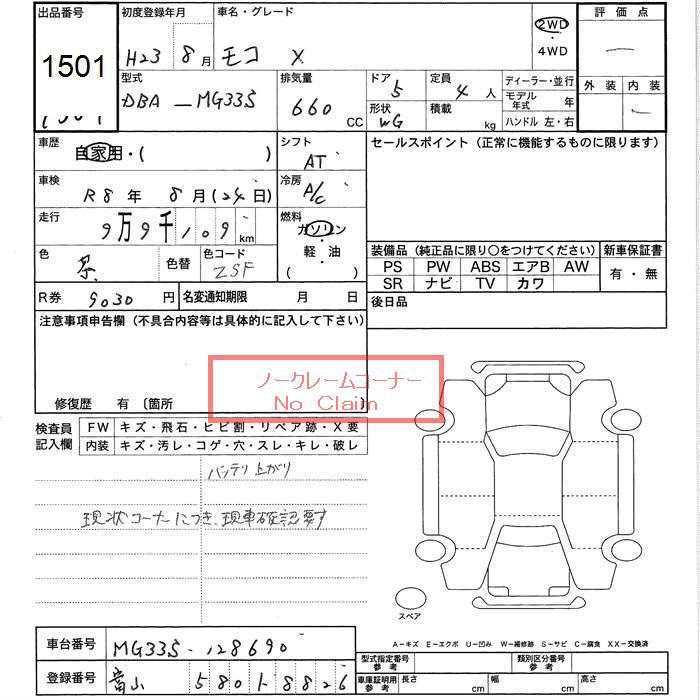 出品番号 初度登録年月 車名・グレード 2WD 評価点
1501 H23 8月 モコ X ・4WD
型式 排気量 ドア 5 定員 4人 ディーラー・並行 外装 内装
DBA-MG33S 660 CC 形状 WG 積載 kg モデル年式 年
ハンドル 左・右
車歴 自家用・( ) シフト AT セールスポイント (正常に機能するものに限ります)
車検 R8年 8月(24日) 冷房 A/C
走行 9万9千109km 燃料 ガソリン・軽・油 ( )
色 茶 色替 色コード ZSF 装備品 (純正品に限り〇をつけてください) 新車保証書
PS PW ABS エアB AW 有・無
SR ナビ TV カワ
R券 9030円 名変通知期限 月 日 後日品
注意事項申告欄 (不具合内容等は具体的に記入して下さい)
ノークレームコーナー
No Claim
修復歴 有 〔箇所
検査員記入欄 FW キズ・飛石・ヒビ割・リペア跡・X要
内装 キズ・汚レ・コゲ・穴・スレ・キレ・破レ
バッテリ上がり
現状コーナーにつき、現車確認要す
スペア
車台番号 MG33S-128690
A−キズ E−エクボ U−凹み W−補修跡 S−サビ C−腐食 XX−交換済
型式指定番号 参考 類別区分番号 参考
登録番号 富山 580 ﾄ 8826
車庫証明用 参考 長さ cm 幅 cm 高さ cm